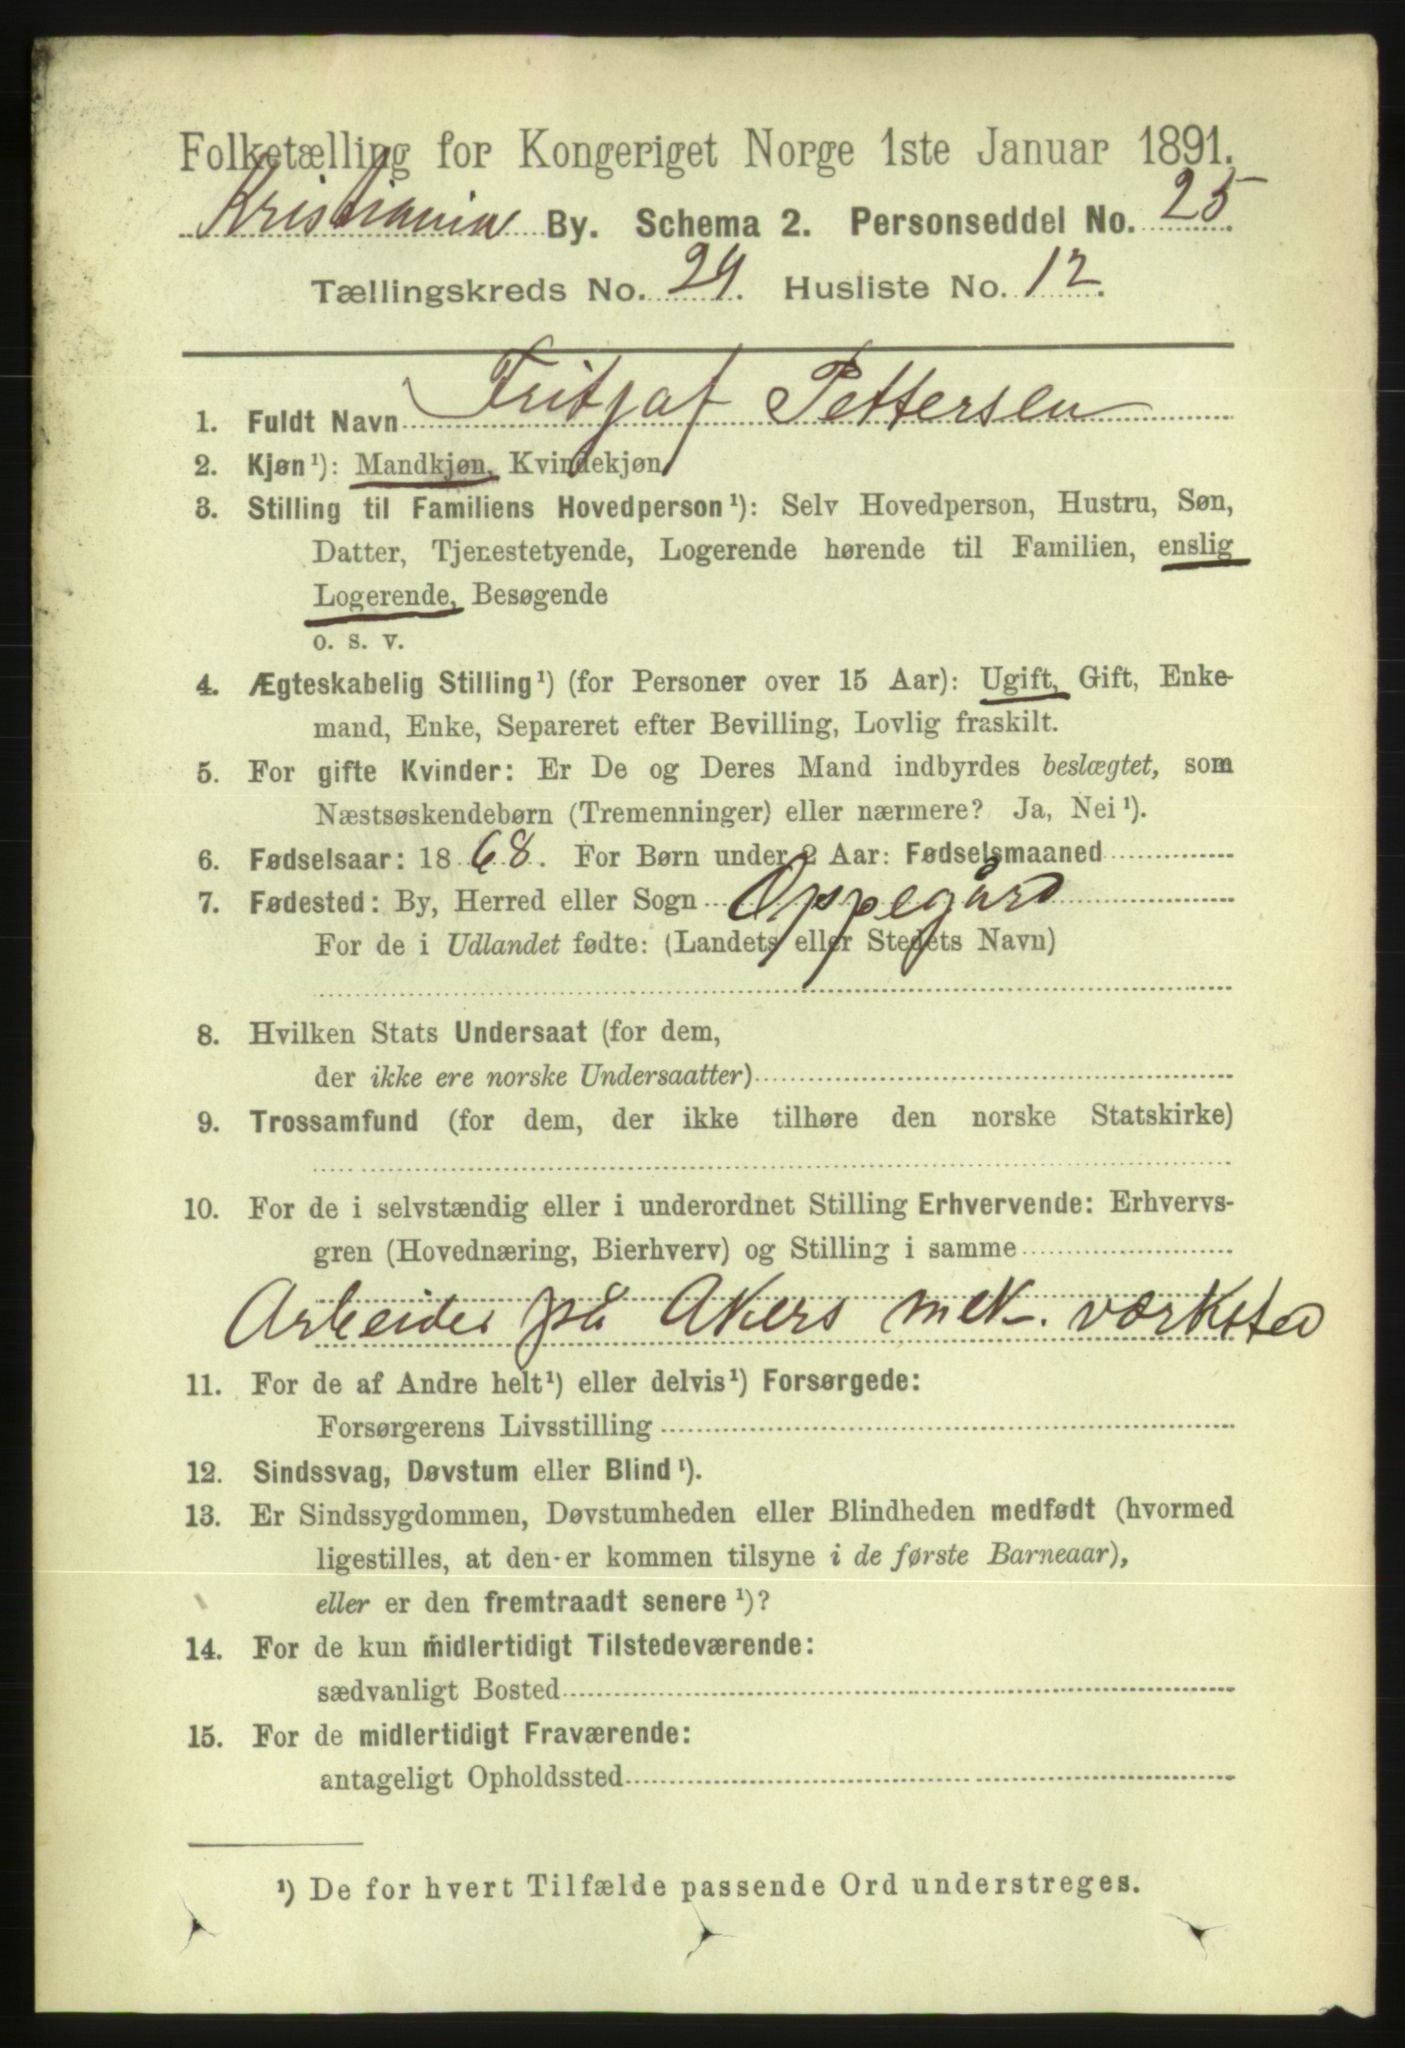 Folketælling for Kongeriget Norge 1ste Januar 1891.
Kristiania By. Schema 2. Personseddel No. 25
Tællingskreds No. 24. Husliste No. 12.
1. Fuldt Navn Fritjof Pettersen
2. Kjøn¹): Mandkjøn, Kvindekjøn
3. Stilling til Familiens Hovedperson¹): Selv Hovedperson, Hustru, Søn,
Datter, Tjenestetyende, Logerende hørende til Familien, enslig
Logerende, Besøgende
o. s. v.
4. Ægteskabelig Stilling¹) (for Personer over 15 Aar): Ugift, Gift, Enke-
mand, Enke, Separeret efter Bevilling, Lovlig fraskilt.
5. For gifte Kvinder: Er De og Deres Mand indbyrdes beslægtet, som
Næstsøskendebørn (Tremenninger) eller nærmere? Ja, Nei¹).
6. Fødselsaar: 1868. For Børn under 2 Aar: Fødselsmaaned
7. Fødested: By, Herred eller Sogn Oppegård
For de i Udlandet fødte: (Landets eller Stedets Navn)
8. Hvilken Stats Undersaat (for dem,
der ikke ere norske Undersaatter)
9. Trossamfund (for dem, der ikke tilhøre den norske Statskirke)
10. For de i selvstændig eller i underordnet Stilling Erhvervende: Erhvervs-
gren (Hovednæring, Bierhverv) og Stilling i samme
Arbeider på Akers mek. værksted
11. For de af Andre helt¹) eller delvis¹) Forsørgede:
Forsørgerens Livsstilling
12. Sindssvag, Døvstum eller Blind¹).
13. Er Sindssygdommen, Døvstumheden eller Blindheden medfødt (hvormed
ligestilles, at den er kommen tilsyne i de første Barneaar),
eller er den fremtraadt senere¹)?
14. For de kun midlertidigt Tilstedeværende:
sædvanligt Bosted
15. For de midlertidigt Fraværende:
antageligt Opholdssted
¹) De for hvert Tilfælde passende Ord understreges.